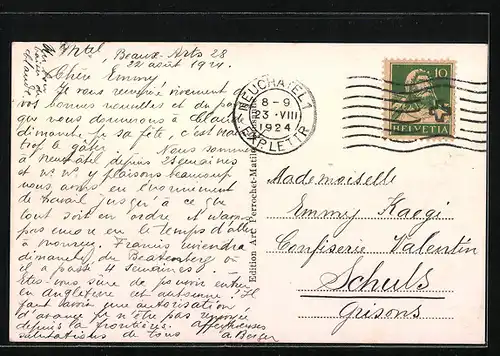 N'tel, Beaux-Arts 28
22 août 1924.
Chère Emmy,
Je vous remercie vivement de
vos bonnes nouvelles et du
que vous donnerez à
dimanche pr sa fête, c'est
trop le gâter. Nous sommes
à Neuchâtel depuis 2 semaines
et ns ns y plaisons beaucoup
nous avons eu énormément
de travail jusqu'à ce que
tout soit en ordre et n'avons
pas encore eu le temps d'aller
à Monruz. Francis viendra
dimanche, du Beatenberg où
il a passé 4 semaines.
Etes-vous sûre de pouvoir entrer
en Angleterre cet automne? Il
faut avoir une autorisation
d'avance pr n'être pas renvoyée
depuis la frontière. Affectueuses
salutations de tous
A. Berger
Edition Art. Perrochet-Matile
NEUCHATEL 1
8-9
23·VIII
1924
EXP. LETTR.
10
HELVETIA
Mademoiselle
Emmy Kaegi
Confiserie Valentin
Schuls
Grisons